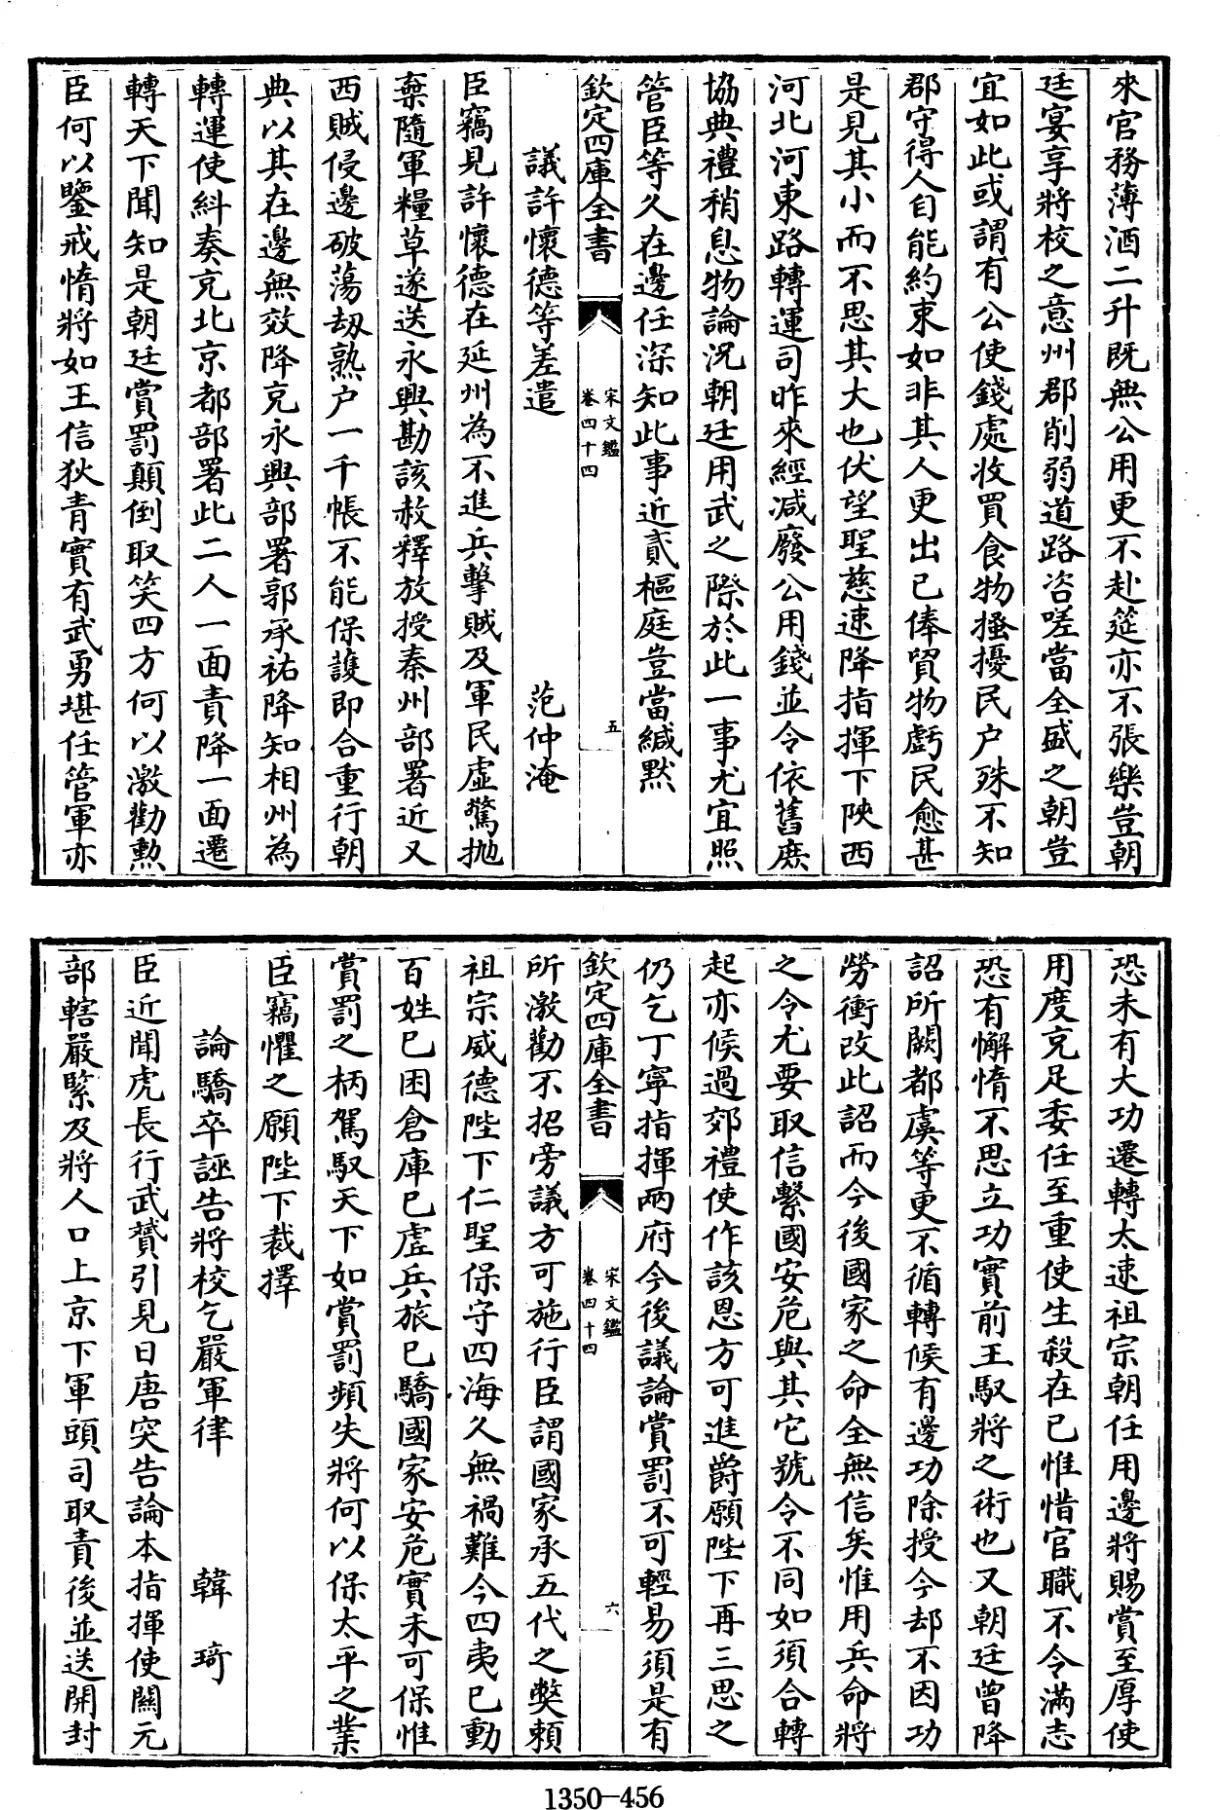 來官務薄酒二升既無公用更不赴筵亦不張樂豈朝
廷宴享將校之意州郡削弱道路咨嗟當全盛之朝豈
宜如此或謂有公使錢處收買食物搔擾民户殊不知
郡守得人自能約束如非其人更出己俸貿物虧民愈甚
是見其小而不思其大也伏望聖慈速降指揮下陝西
河北河東路轉運司昨來經減廢公用錢並令依舊庶
協典禮稍息物論況朝廷用武之際於此一事尤宜照
管臣等久在邊任深知此事近貳樞庭豈當緘默
欽定四庫全書
宋文鑑
卷四十四
五
議許懷德等差遣
范仲淹
臣竊見許懷德在延州為不進兵擊賊及軍民虛驚抛
棄隨軍糧草遂送永興勘該赦釋放授秦州部署近又
西賊侵邊破蕩刼熟户一千帳不能保護即合重行朝
典以其在邊無效降充永興部署郭承祐降知相州為
轉運使糾奏充北京都部署此二人一面責降一面遷
轉天下聞知是朝廷賞罰顛倒取笑四方何以激勸勲
臣何以鑒戒惰將如王信狄青實有武勇堪任管軍亦
恐未有大功遷轉太速祖宗朝任用邊將賜賞至厚使
用度充足委任至重使生殺在已惟惜官職不令滿志
恐有懈惰不思立功實前王馭將之術也又朝廷曾降
詔所闕都虞等更不循轉候有邊功除授今却不因功
勞衝改此詔而今後國家之命全無信矣惟用兵命將
之令尤要取信繫國安危與其它號令不同如須合轉
起亦候過郊禮使作該恩方可進爵願陛下再三思之
仍乞丁寧指揮兩府今後議論賞罰不可輕易須是有
欽定四庫全書
宋文鑑
卷四十四
六
所激勸不招旁議方可施行臣謂國家承五代之獘頼
祖宗威德陛下仁聖保守四海久無禍難今四夷已動
百姓已困倉庫已虛兵旅已驕國家安危實未可保惟
賞罰之柄駕馭天下如賞罰頻失將何以保太平之業
臣竊懼之願陛下裁擇
論驕卒誣告將校乞嚴軍律
韓琦
臣近聞虎長行武贇引見日唐突告論本指揮使關元
部轄嚴緊及將人口上京下軍頭司取責後並送開封
1350—456